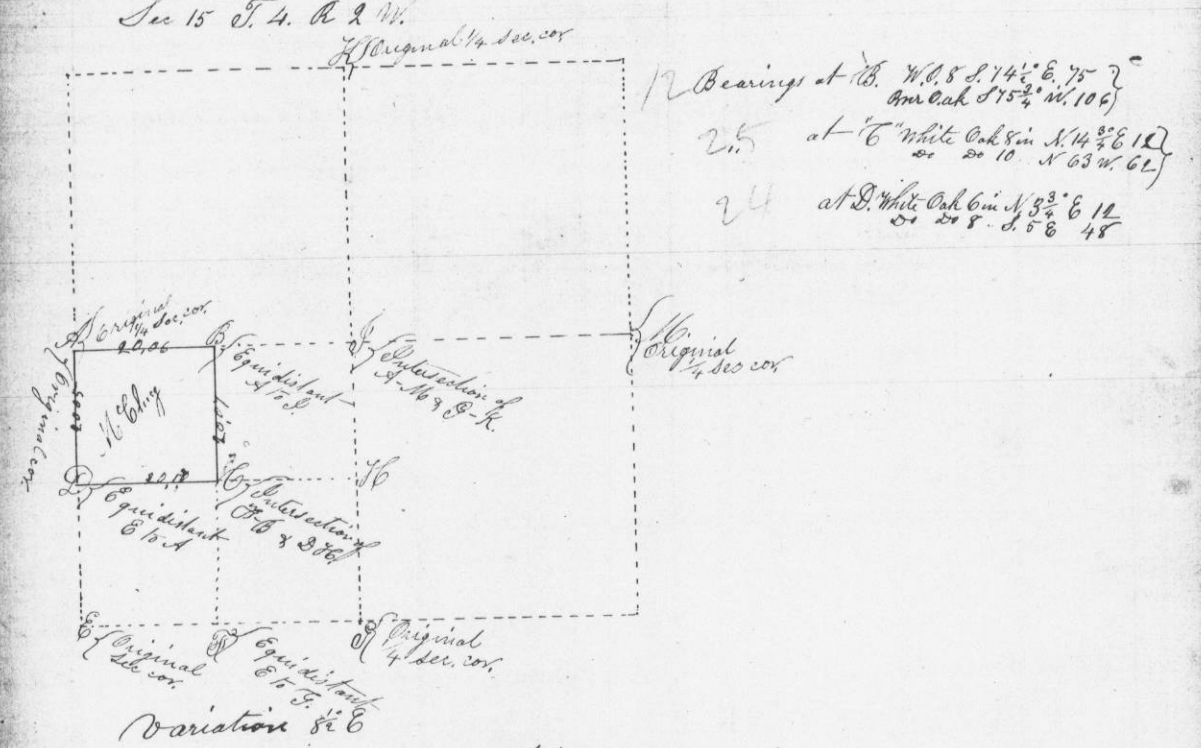 Sec 15 T. 4. R 2 W.
Original 1/4 sec. cor
12 Bearings at B. W.O. 8 S. 74 1/2° E. 75
Bur Oak S 75 3/4° W. 106
25 at "C" White Oak 8 in N. 14 3/4° E 12
Do Do 10 N 63 W. 62
24 at D. White Oak 6 in N 3 3/4° E 12
Do Do 8 S. 5 E 48
A Original 1/4 Sec. cor.
20,06
B
Equidistant
A to I
I
Intersection of
A-M & G-K.
M
Original
1/4 sec cor
Original cor.
McClug
D
20,18
Equidistant
E to A
C
Intersection of
F-B & D H.
H
E
Original
Sec cor.
F
Equidistant
E to G.
G
Original
1/4 sec. cor.
Variation 8 1/2° E